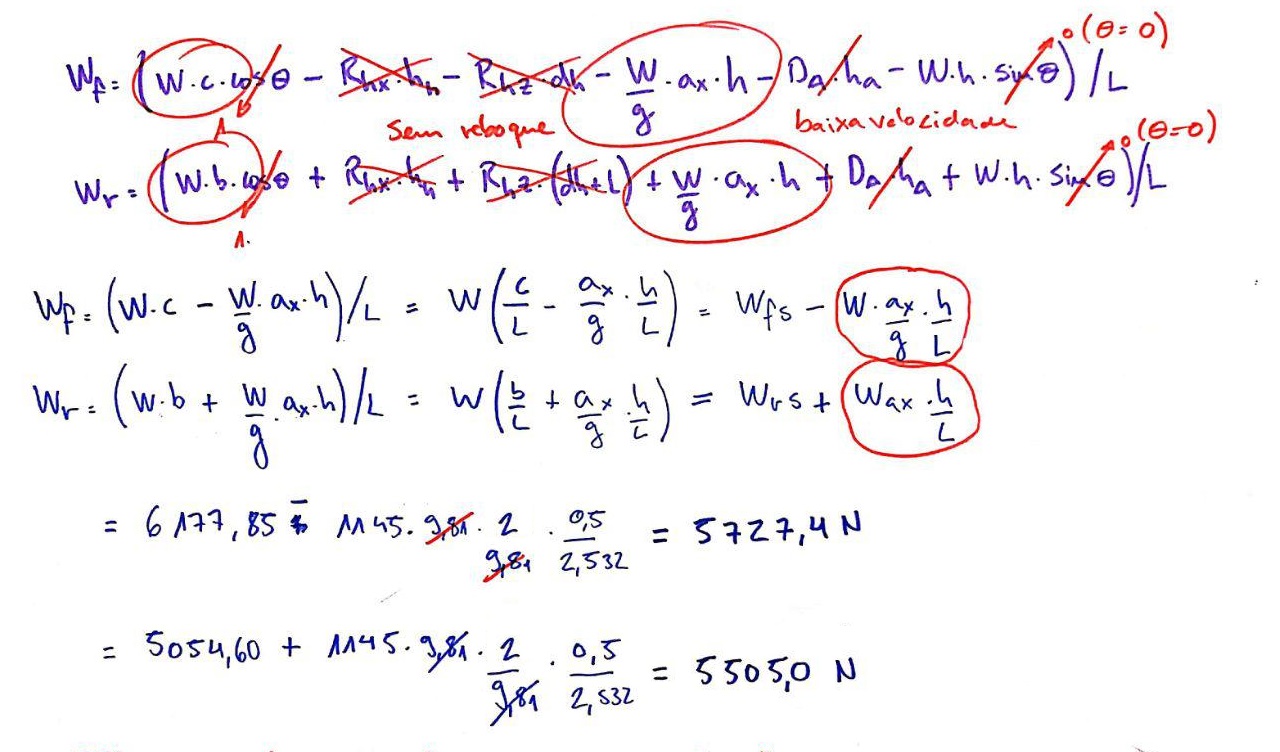 0 (θ=0)
Wf = (W.c.cosθ - Rhx.hh - Rhz.dh - W/g.ax.h - DA.ha - W.h.sinθ)/L
1 sem reboque baixa velocidade 0 (θ=0)
Wr = (W.b.cosθ + Rhx.hh + Rhz.(dh+L) + W/g.ax.h + DA.ha + W.h.sinθ)/L
1.
Wf = (W.c - W/g.ax.h)/L = W(c/L - ax/g.h/L) = Wfs - W.ax/g.h/L
Wr = (W.b + W/g.ax.h)/L = W(b/L + ax/g.h/L) = Wrs + Wax.h/L
= 6177,85 - 1145.9,81.2/9,81.0,5/2,532 = 5727,4 N
= 5054,60 + 1145.9,81.2/9,81.0,5/2,532 = 5505,0 N